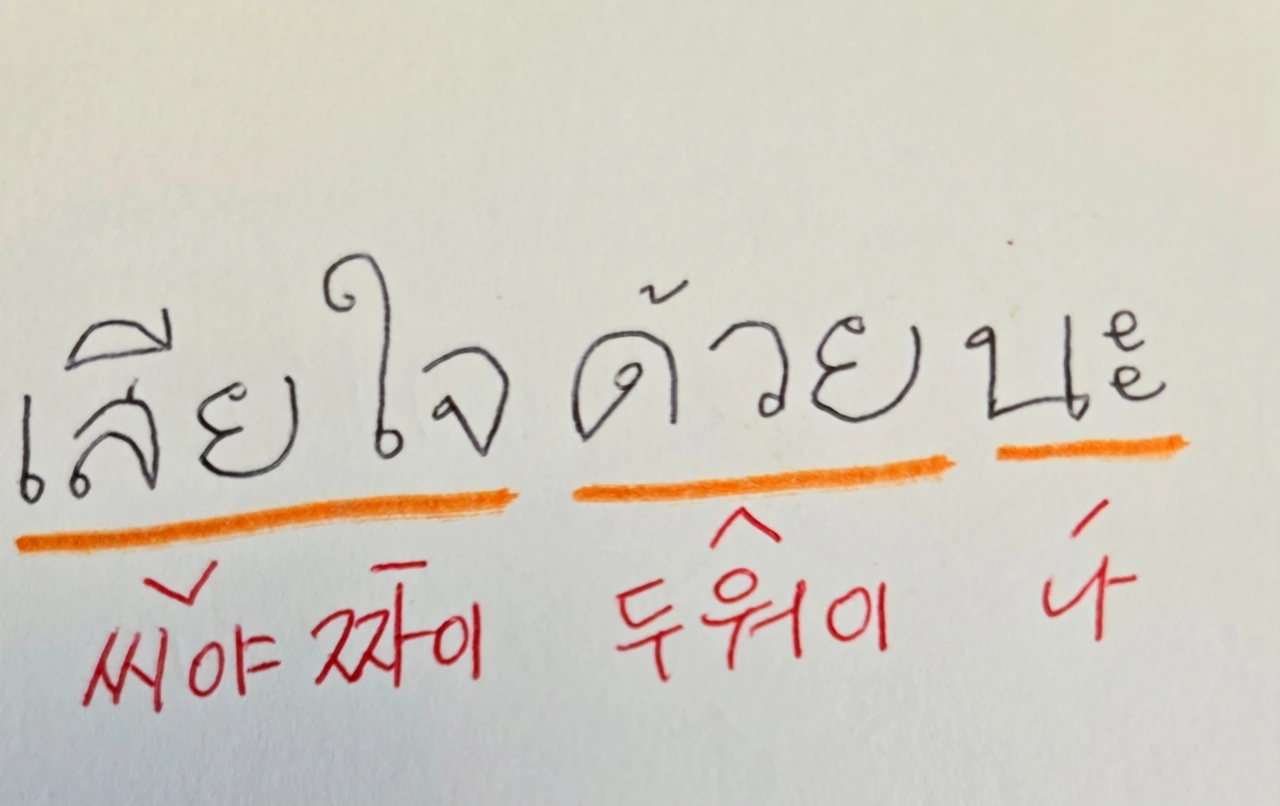 เสียใจ ด้วย นะ
씨야 짜이 두워이 나